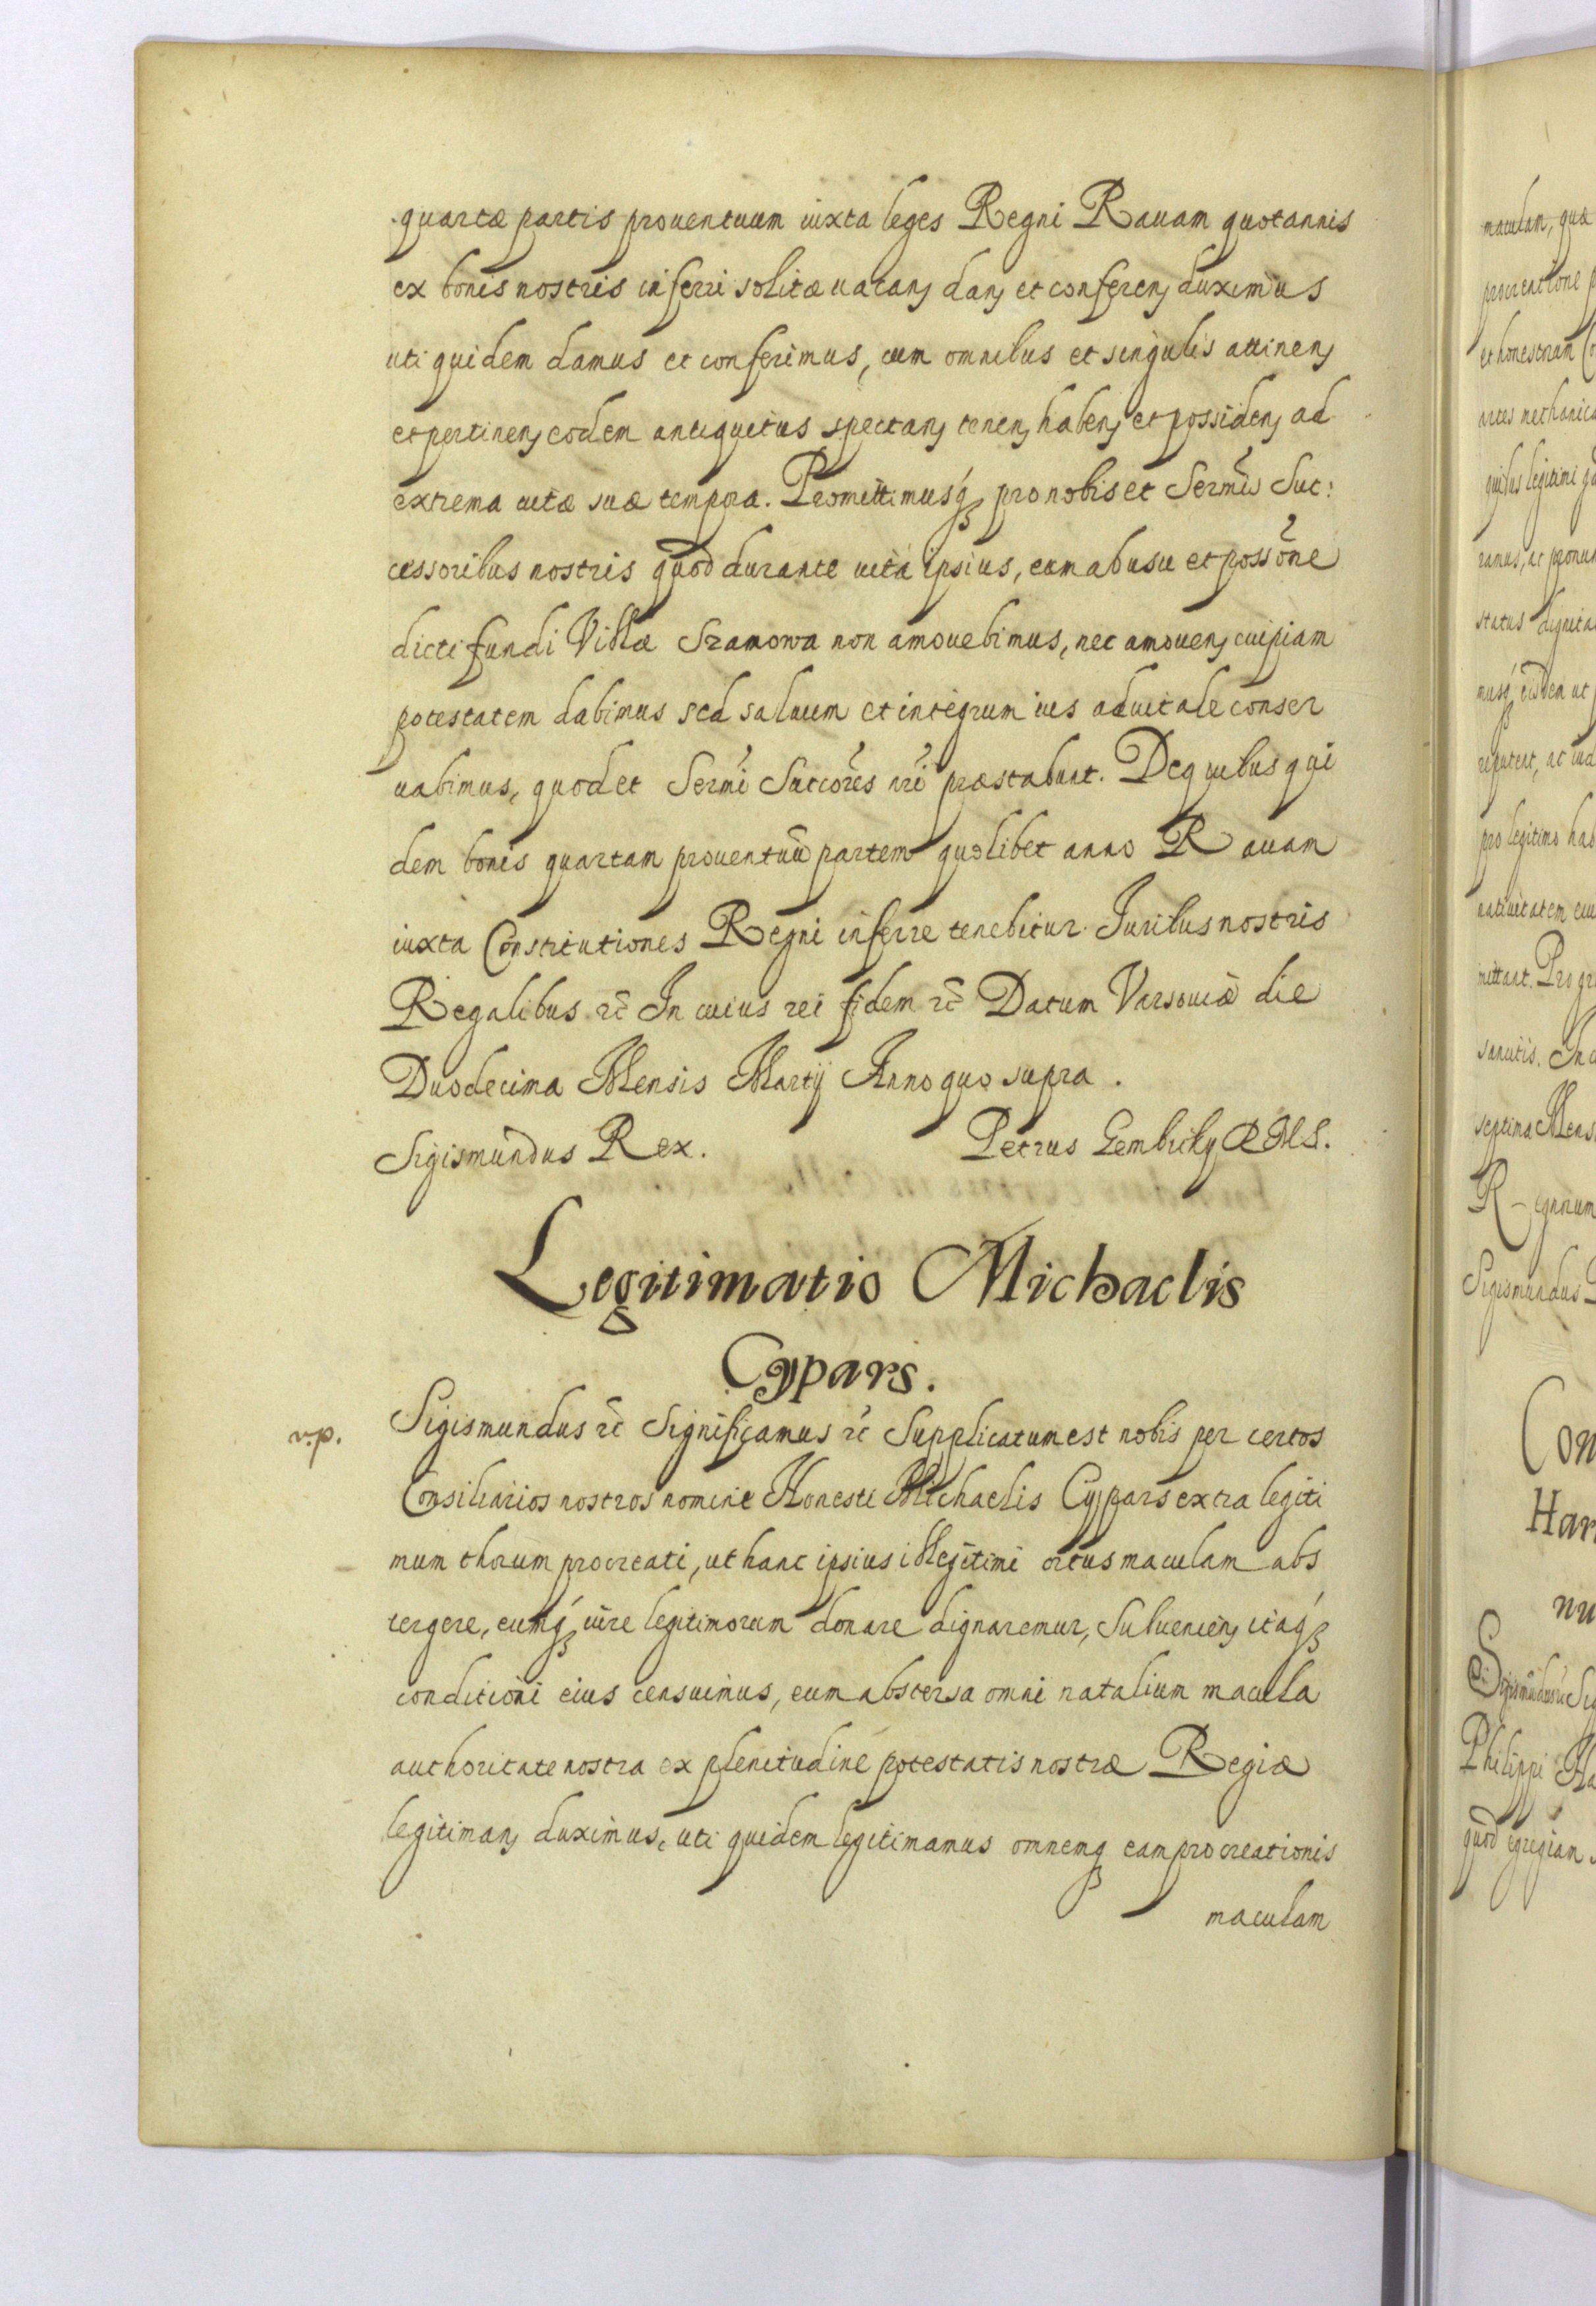 quartæ partis prouentuum iuxta leges Regni Rauam quotannis
ex bonis nostris inferri solitæ uacanȝ danȝ et conferenȝ duximus
uti quidem damus et conferimus, cum omnibus et singulis attinenȝ
et pertinenȝ eodem antiquitus spectanȝ tenenȝ habenȝ et possidenȝ ad
extrema uitæ suæ tempora. Promittimusq́ȝ pro nobis et Sermis Suc:
cessoribus nostris quod durante uita ipsius, eum ab usu et possōne
dicti fundi Villæ Szamowa non amouebimus, nec amouenȝ cuipiam
potestatem dabimus sed saluum et integrum ius aduitale conser
uabimus, quod et Sermi Succores nri præstabunt. De quibus qui
dem bonis quartam prouentuū partem quolibet anno Rauam
iuxta Constitutiones Regni inferre tenebitur. Juribus nostris
Regalibus rc̄ In cuius rei fidem rc̄ Datum Varsouiæ die
Duodecima Mensis Martij Anno quo supra.
Sigismundus Rex. Petrus Gembicky R M S.
Legitimatio Michaelis
Cypars.
v.p.
Sigismundus rc̄ Significamus rc̄ Supplicatum est nobis per certos
Consiliarios nostros nomine Honesti Michaelis Cypars extra legiti
mum thorum procreati, ut hanc ipsius illegitimi ortus maculam abs
tergere, eumq́ȝ iure legitimorum donare dignaremur, Subuenienȝ itaq́ȝ
conditioni eius censuimus, eum abstersa omni natalium macula
authoritate nostra ex plenitudine potestatis nostræ Regiæ
legitimanȝ duximus, uti quidem legitimamus omnemqȝ eam procreationis
maculam
maculam, quæ
procreatione
et honestum
artes mechanica
quibus legitimi
ramus, ac pronun
status dignita
musq́ȝ eidem ut
reputent, ac iud
pro legitimo hab
natiuitatem eiu
mittant. Pro gr
sanctis. In c
septima Mens
Regnorum
Sigismundus
Con
Har
nu
Sigismūdus rc̄ Sig
Philippi Ha
quod egregiam